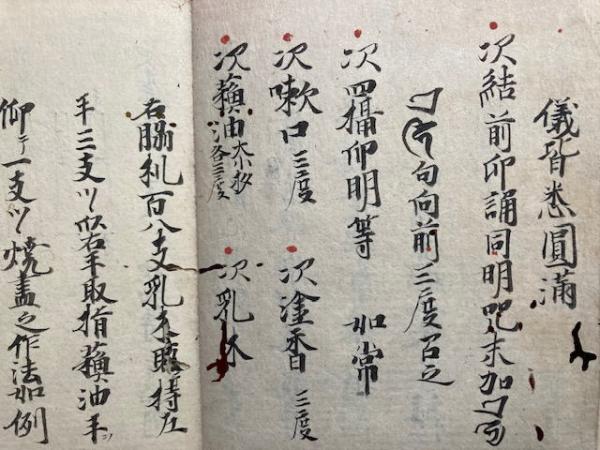 儀皆悉圓滿
次結前印誦同明咒末加
句向前三度召之
次四攝印明等 如常
次嗽口三度 次塗香 三度
次蘓油大小杓各三度 次乳木
右脇机百八支乳木取持左
手三支ツヽ以右手取指蘓油
仰テ一支ツヽ燒盡之作法如例